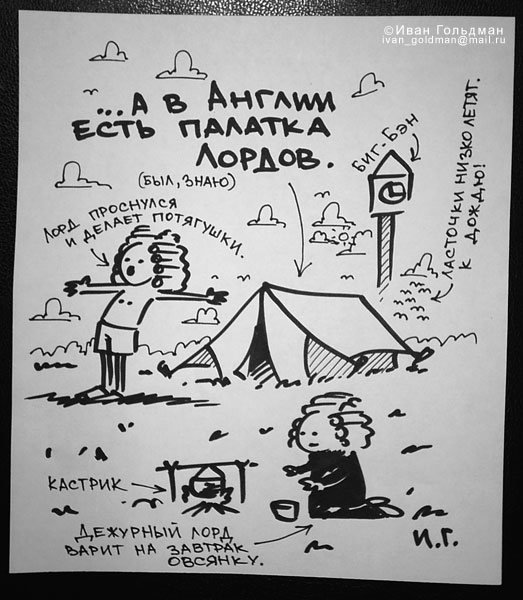 ©Иван Гольдман
ivan_goldman@mail.ru
...А В АНГЛИИ
ЕСТЬ ПАЛАТКА
ЛОРДОВ.
(БЫЛ, ЗНАЮ)
БИГ-БЭН
ЛАСТОЧКИ НИЗКО ЛЕТЯТ.
К ДОЖДЮ!
ЛОРД ПРОСНУЛСЯ
И ДЕЛАЕТ ПОТЯГУШКИ.
КАСТРИК
ДЕЖУРНЫЙ ЛОРД
ВАРИТ НА ЗАВТРАК
ОВСЯНКУ.
И.Г.